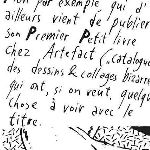 par exemple qui d'
ailleurs vient de publier
son Premier Petit livre
chez Artefact (Catalogue
des dessins & collages bizarres
qui ont, si on veut, quelque
chose à voir avec le
titre.